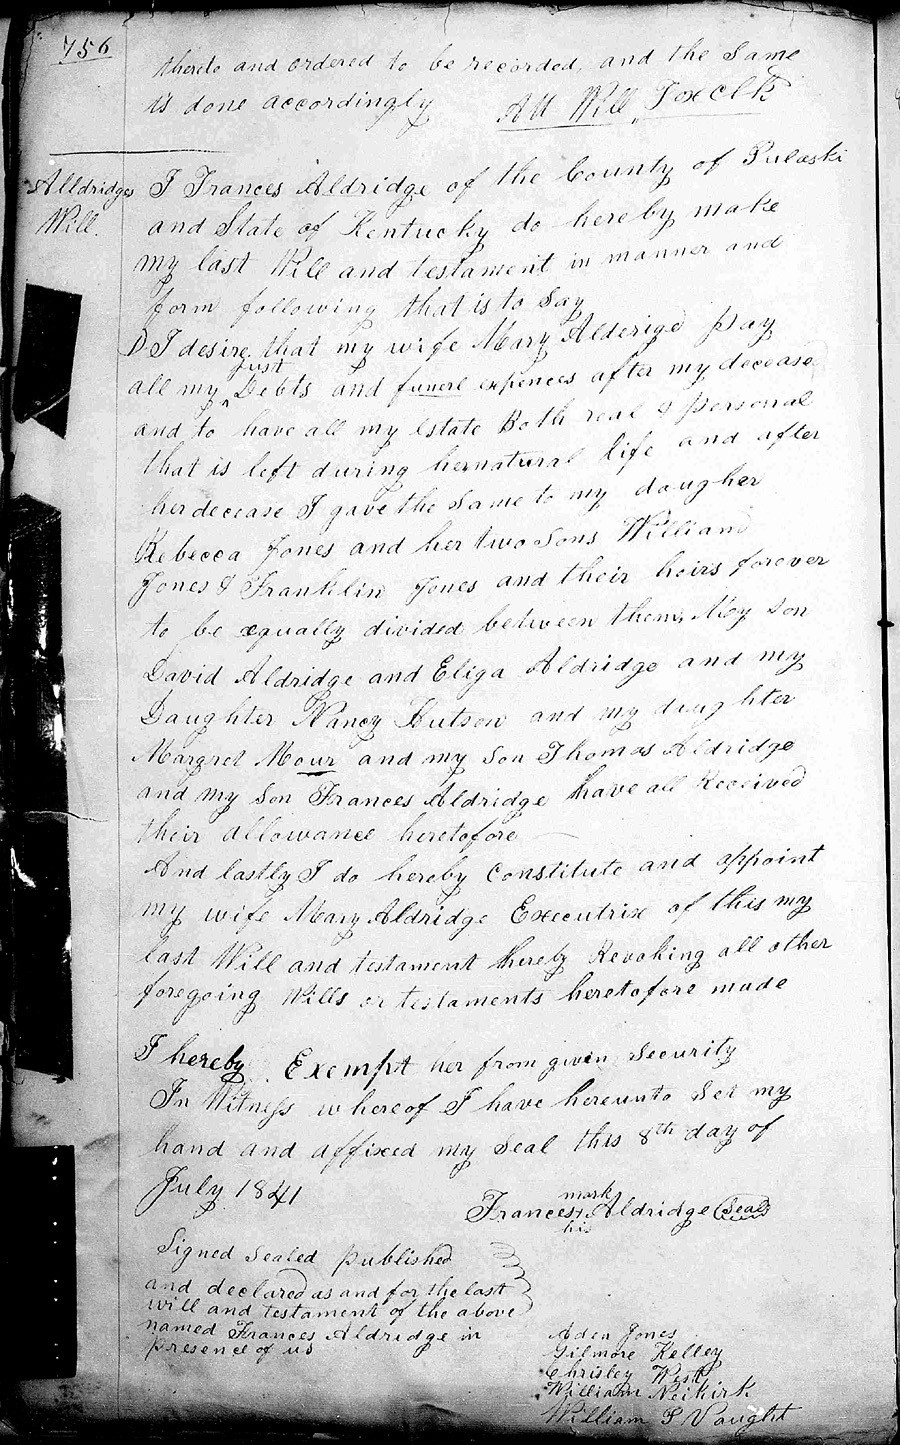 756
thereto and ordered to be recorded, and the Same
is done accordingly Att Will Fox Clk
Alldridges
Will.
I Frances Aldridge of the County of Pulaski
and State of Kentucky do hereby make
my last Will and testament in manner and
form following that is to Say
I desire that my wife Mary Alderige pay
all my just Debts and funerl expences after my decease
and to have all my Estate Both real & personal
that is left during her natural life and after
her decease I gave the Same to my daugher
Rebecca Jones and her two Sons William
Jones & Franklin Jones and their heirs forever
to be equally divided between them, My Son
David Aldridge and Eliga Aldridge and my
Daughter Nancy Hutson and my daughter
Margret Mour and my Son Thomas Aldridge
and my Son Frances Aldridge have all Received
their allowance heretofore
And lastly I do hereby Constitute and appoint
my wife Mary Aldridge Executrix of this my
last Will and testament hereby Revoking all other
foregoing Wills or testaments heretofore made
I hereby Exempt her from givin Security
In Witness whereof I have hereunto Set my
hand and affixed my Seal this 8th day of
July 1841
mark
Frances + Aldridge Seal
his
Signed Sealed published
and declared as and for the last
will and testament of the above
named Frances Aldridge in
presence of us
Aden Jones
Gilmore Kelley
Chrisley West
William Neikirk
William P Vaught